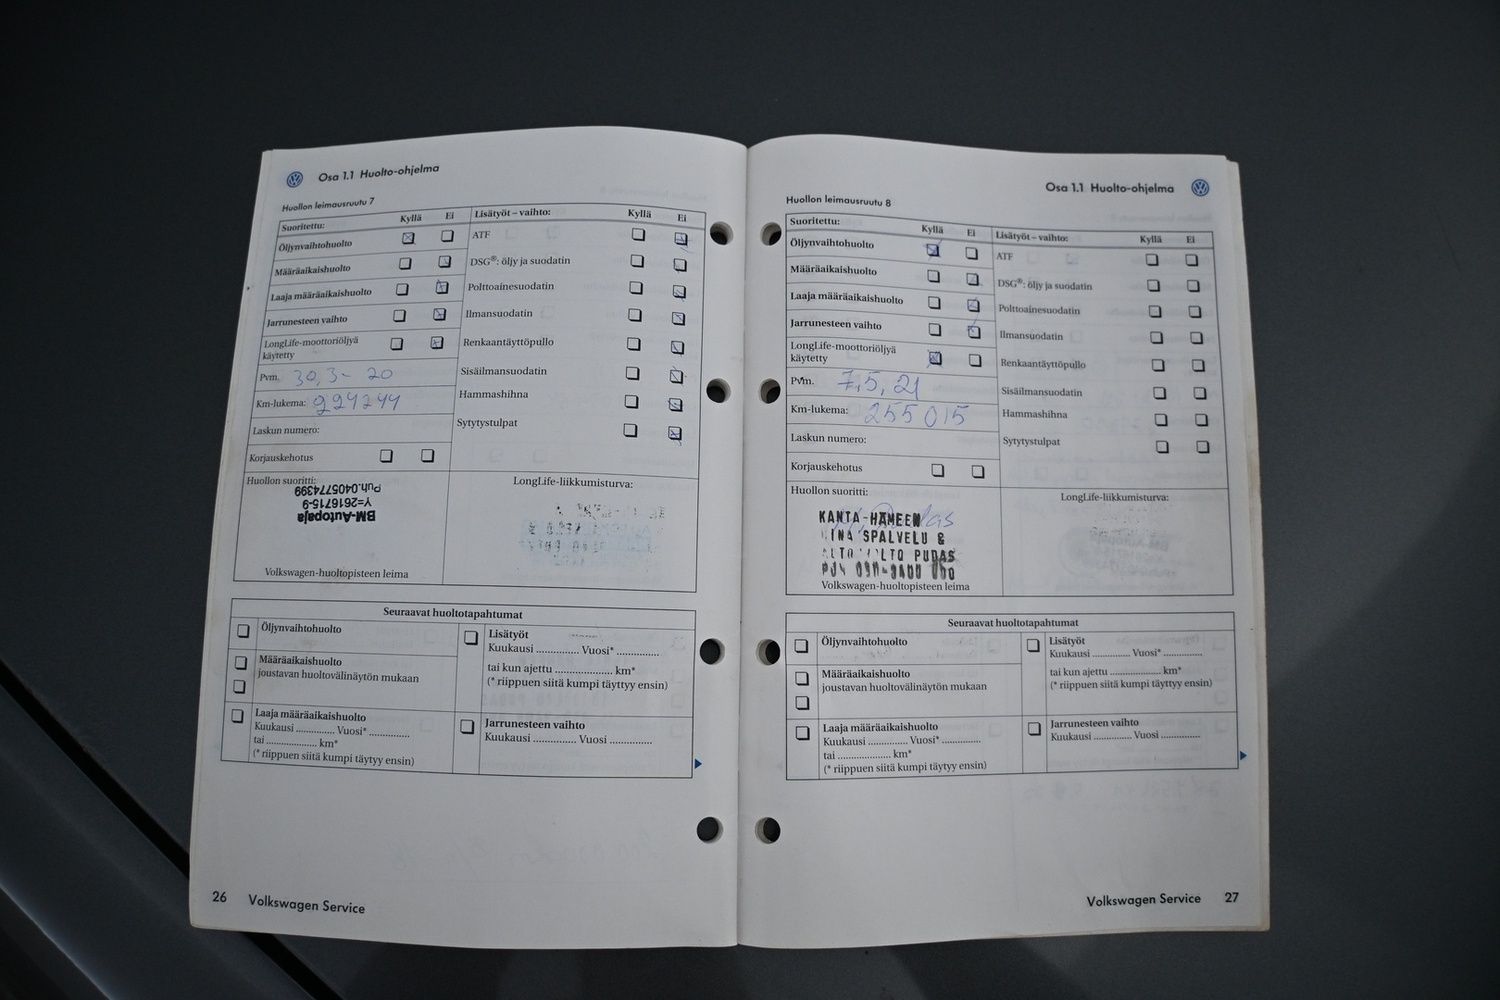 Osa 1.1 Huolto-ohjelma
Huollon leimausruutu 7
Suoritettu: Kyllä Ei
Öljynvaihtohuolto
Määräaikaishuolto
Laaja määräaikaishuolto
Jarrunesteen vaihto
LongLife-moottoriöljyä
käytetty
Pvm. 30,3- 20
Km-lukema:
Laskun numero:
Korjauskehotus
Lisätyöt – vaihto: Kyllä Ei
ATF
DSG®: öljy ja suodatin
Polttoainesuodatin
Ilmansuodatin
Renkaantäyttöpullo
Sisäilmansuodatin
Hammashihna
Sytytystulpat
Huollon suoritti:
BM-Autopaja
Y=2616715-9
Puh.0405774399
Volkswagen-huoltopisteen leima
LongLife-liikkumisturva:
Seuraavat huoltotapahtumat
Öljynvaihtohuolto
Määräaikaishuolto
joustavan huoltovälinäytön mukaan
Laaja määräaikaishuolto
Kuukausi .............. Vuosi* ..............
tai ...................... km*
(* riippuen siitä kumpi täytyy ensin)
Lisätyöt
Kuukausi ............... Vuosi* ...............
tai kun ajettu ..................... km*
(* riippuen siitä kumpi täyttyy ensin)
Jarrunesteen vaihto
Kuukausi ............... Vuosi ...............
26 Volkswagen Service
Osa 1.1 Huolto-ohjelma
Huollon leimausruutu 8
Suoritettu: Kyllä Ei
Öljynvaihtohuolto
Määräaikaishuolto
Laaja määräaikaishuolto
Jarrunesteen vaihto
LongLife-moottoriöljyä
käytetty
Pvm. 7,5,21
Km-lukema: 255015
Laskun numero:
Korjauskehotus
Lisätyöt – vaihto: Kyllä Ei
ATF
DSG®: öljy ja suodatin
Polttoainesuodatin
Ilmansuodatin
Renkaantäyttöpullo
Sisäilmansuodatin
Hammashihna
Sytytystulpat
Huollon suoritti:
KANTA-HÄMEEN
SPALVELU &
PUDAS
Volkswagen-huoltopisteen leima
LongLife-liikkumisturva:
Seuraavat huoltotapahtumat
Öljynvaihtohuolto
Määräaikaishuolto
joustavan huoltovälinäytön mukaan
Laaja määräaikaishuolto
Kuukausi .............. Vuosi* ..............
tai ..................... km*
(* riippuen siitä kumpi täytyy ensin)
Lisätyöt
Kuukausi .............. Vuosi* ..............
tai kun ajettu ............... km*
(* riippuen siitä kumpi täyttyy ensin)
Jarrunesteen vaihto
Kuukausi .............. Vuosi ..............
Volkswagen Service 27